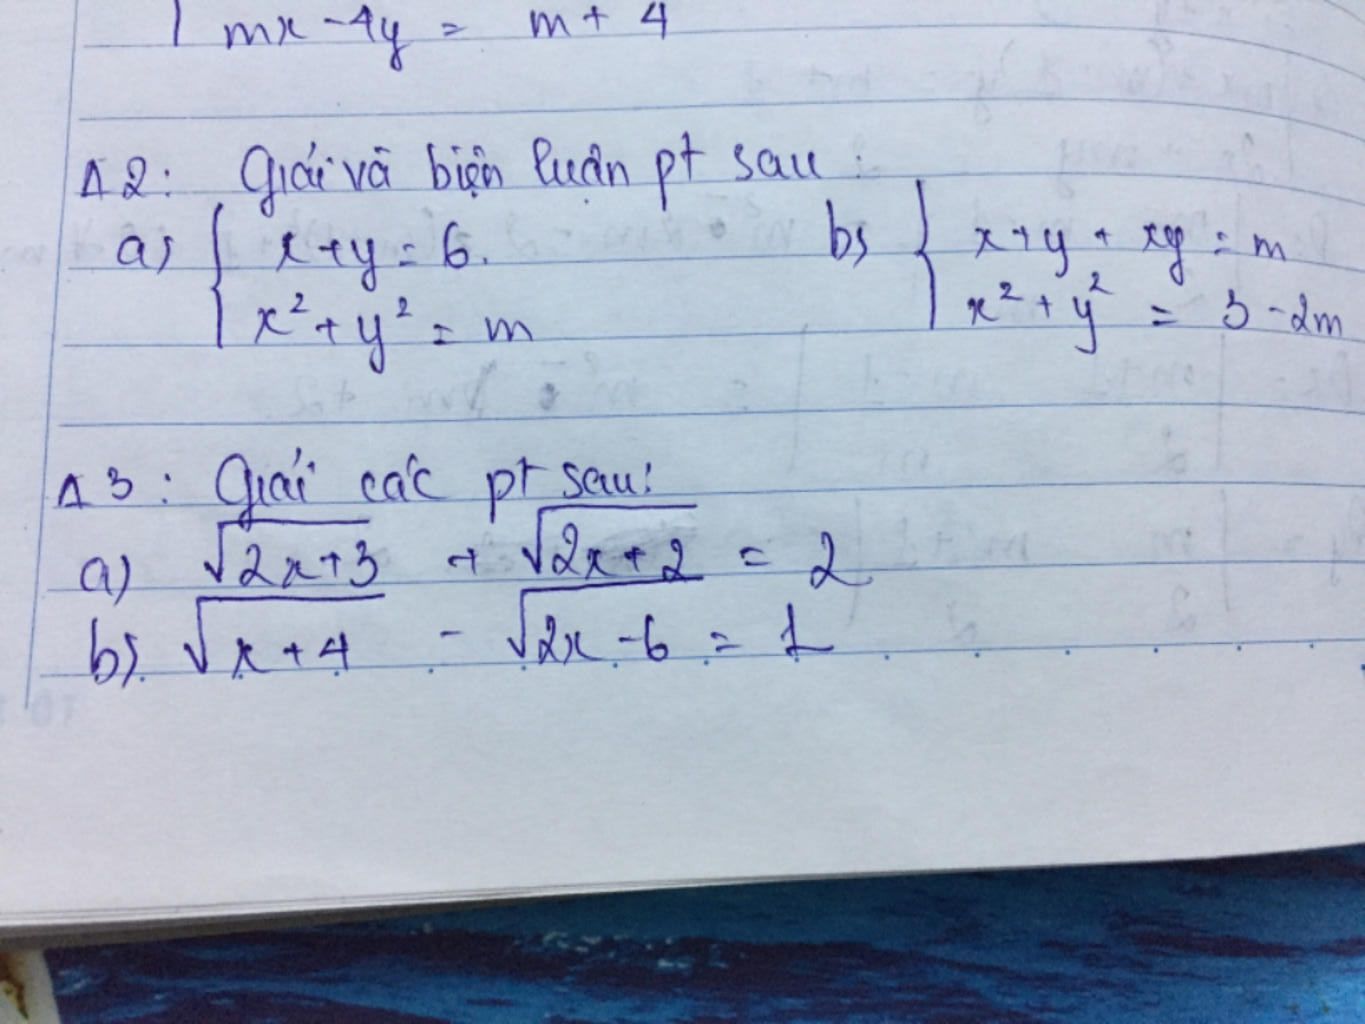 mx - 4y = m + 4
12: Giải và biện luận pt sau:
a) { x + y = 6. b) { x + y + xy = m
x² + y² = m x² + y² = 3 - 2m
13: Giải các pt sau:
a) √2x+3 + √2x+2 = 2
b) √x+4 - √2x-6 = 1